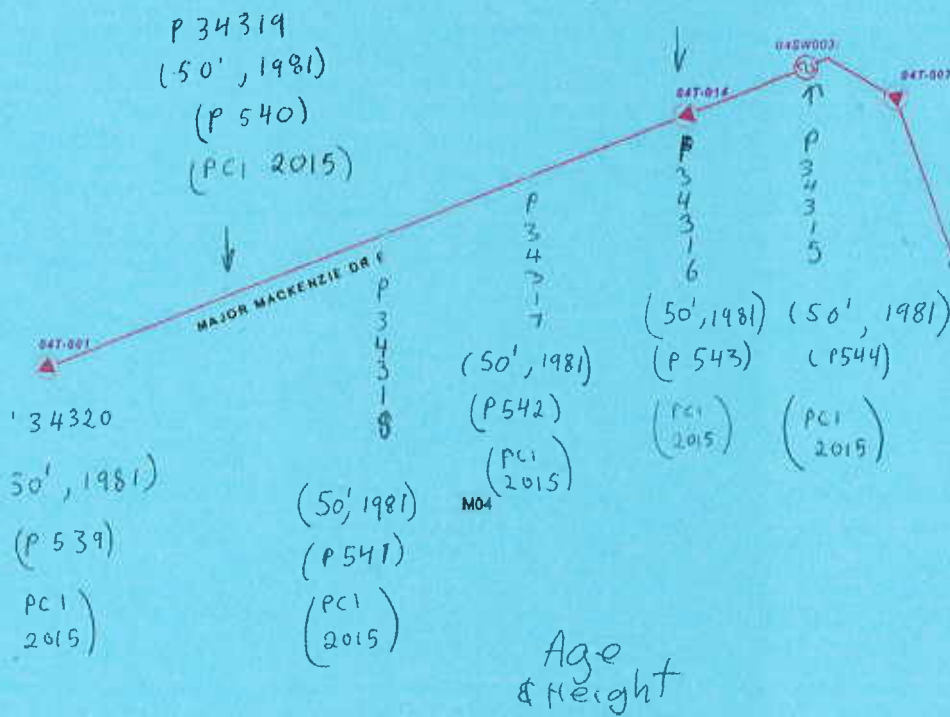 P 34319
(50', 1981)
(P 540)
(PCI 2015)
04SW003
04T-014
04T-007
MAJOR MACKENZIE DR E
04T-001
'34320
50', 1981)
(P 539)
PCI
2015)
P
3
4
3
1
8
(50', 1981)
(P 541)
(PCI
2015)
P
3
4
3
1
7
(50', 1981)
(P542)
(PCI
2015)
M04
P
3
4
3
1
6
(50', 1981)
(P 543)
(PCI
2015)
P
3
4
3
1
5
(50', 1981)
(P544)
(PCI
2015)
Age
& Height